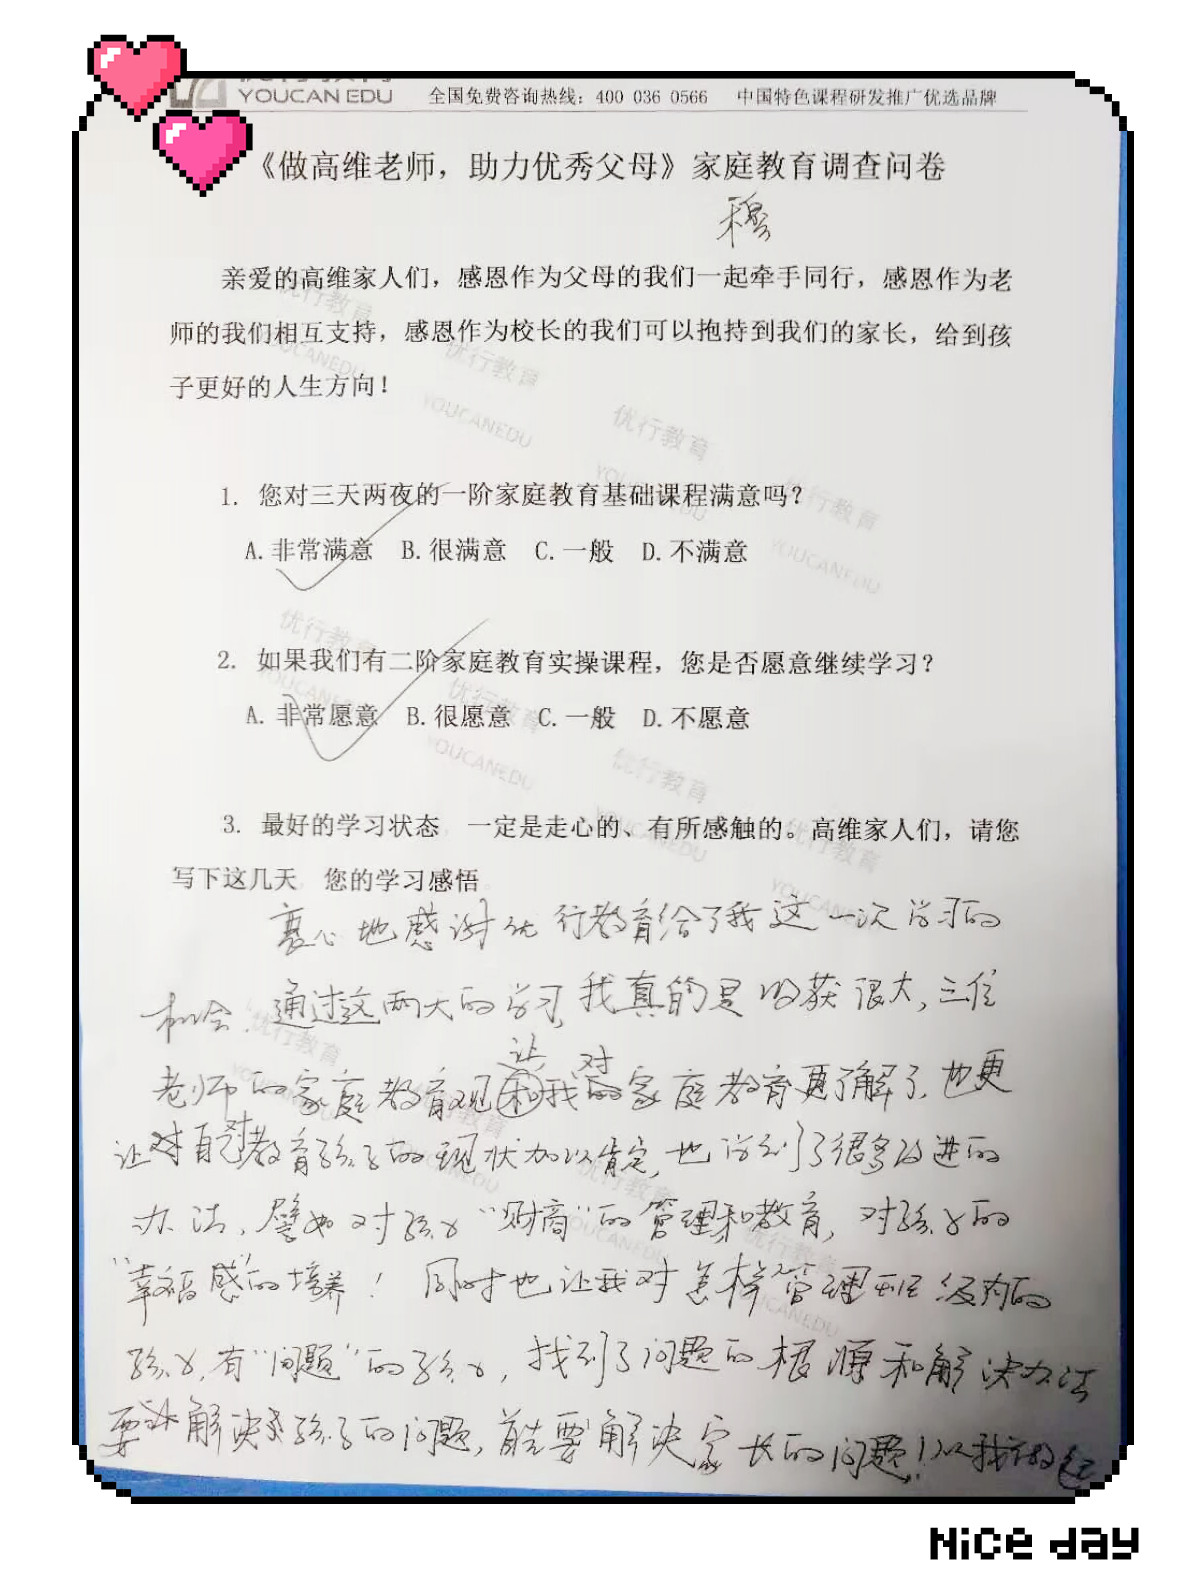 YOUCAN EDU 全国免费咨询热线：400 036 0566 中国特色课程研发推广优选品牌
《做高维老师，助力优秀父母》家庭教育调查问卷
穆
亲爱的高维家人们，感恩作为父母的我们一起牵手同行，感恩作为老
师的我们相互支持，感恩作为校长的我们可以抱持到我们的家长，给到孩
子更好的人生方向！
1. 您对三天两夜的一阶家庭教育基础课程满意吗？
A. 非常满意 B. 很满意 C. 一般 D. 不满意
2. 如果我们有二阶家庭教育实操课程，您是否愿意继续学习？
A. 非常愿意 B. 很愿意 C. 一般 D. 不愿意
3. 最好的学习状态 一定是走心的、有所感触的。高维家人们，请您
写下这几天 您的学习感悟。
衷心地感谢优行教育给了我这一次学习的
机会。通过这两天的学习，我真的是收获很大，三位
让 对
老师的家庭教育观和我的家庭教育更了解了，也更
让对自己教育孩子的现状加以肯定，也学到了很多改进的
办法，譬如对孩子“财商”的管理和教育，对孩子的
“幸福感”的培养！同时也让我对怎样管理班级内的
孩子，有“问题”的孩子，找到了问题的根源和解决办法
要解决孩子的问题，首先要解决家长的问题！以我
优行教育
YOUCANEDU
Nice day